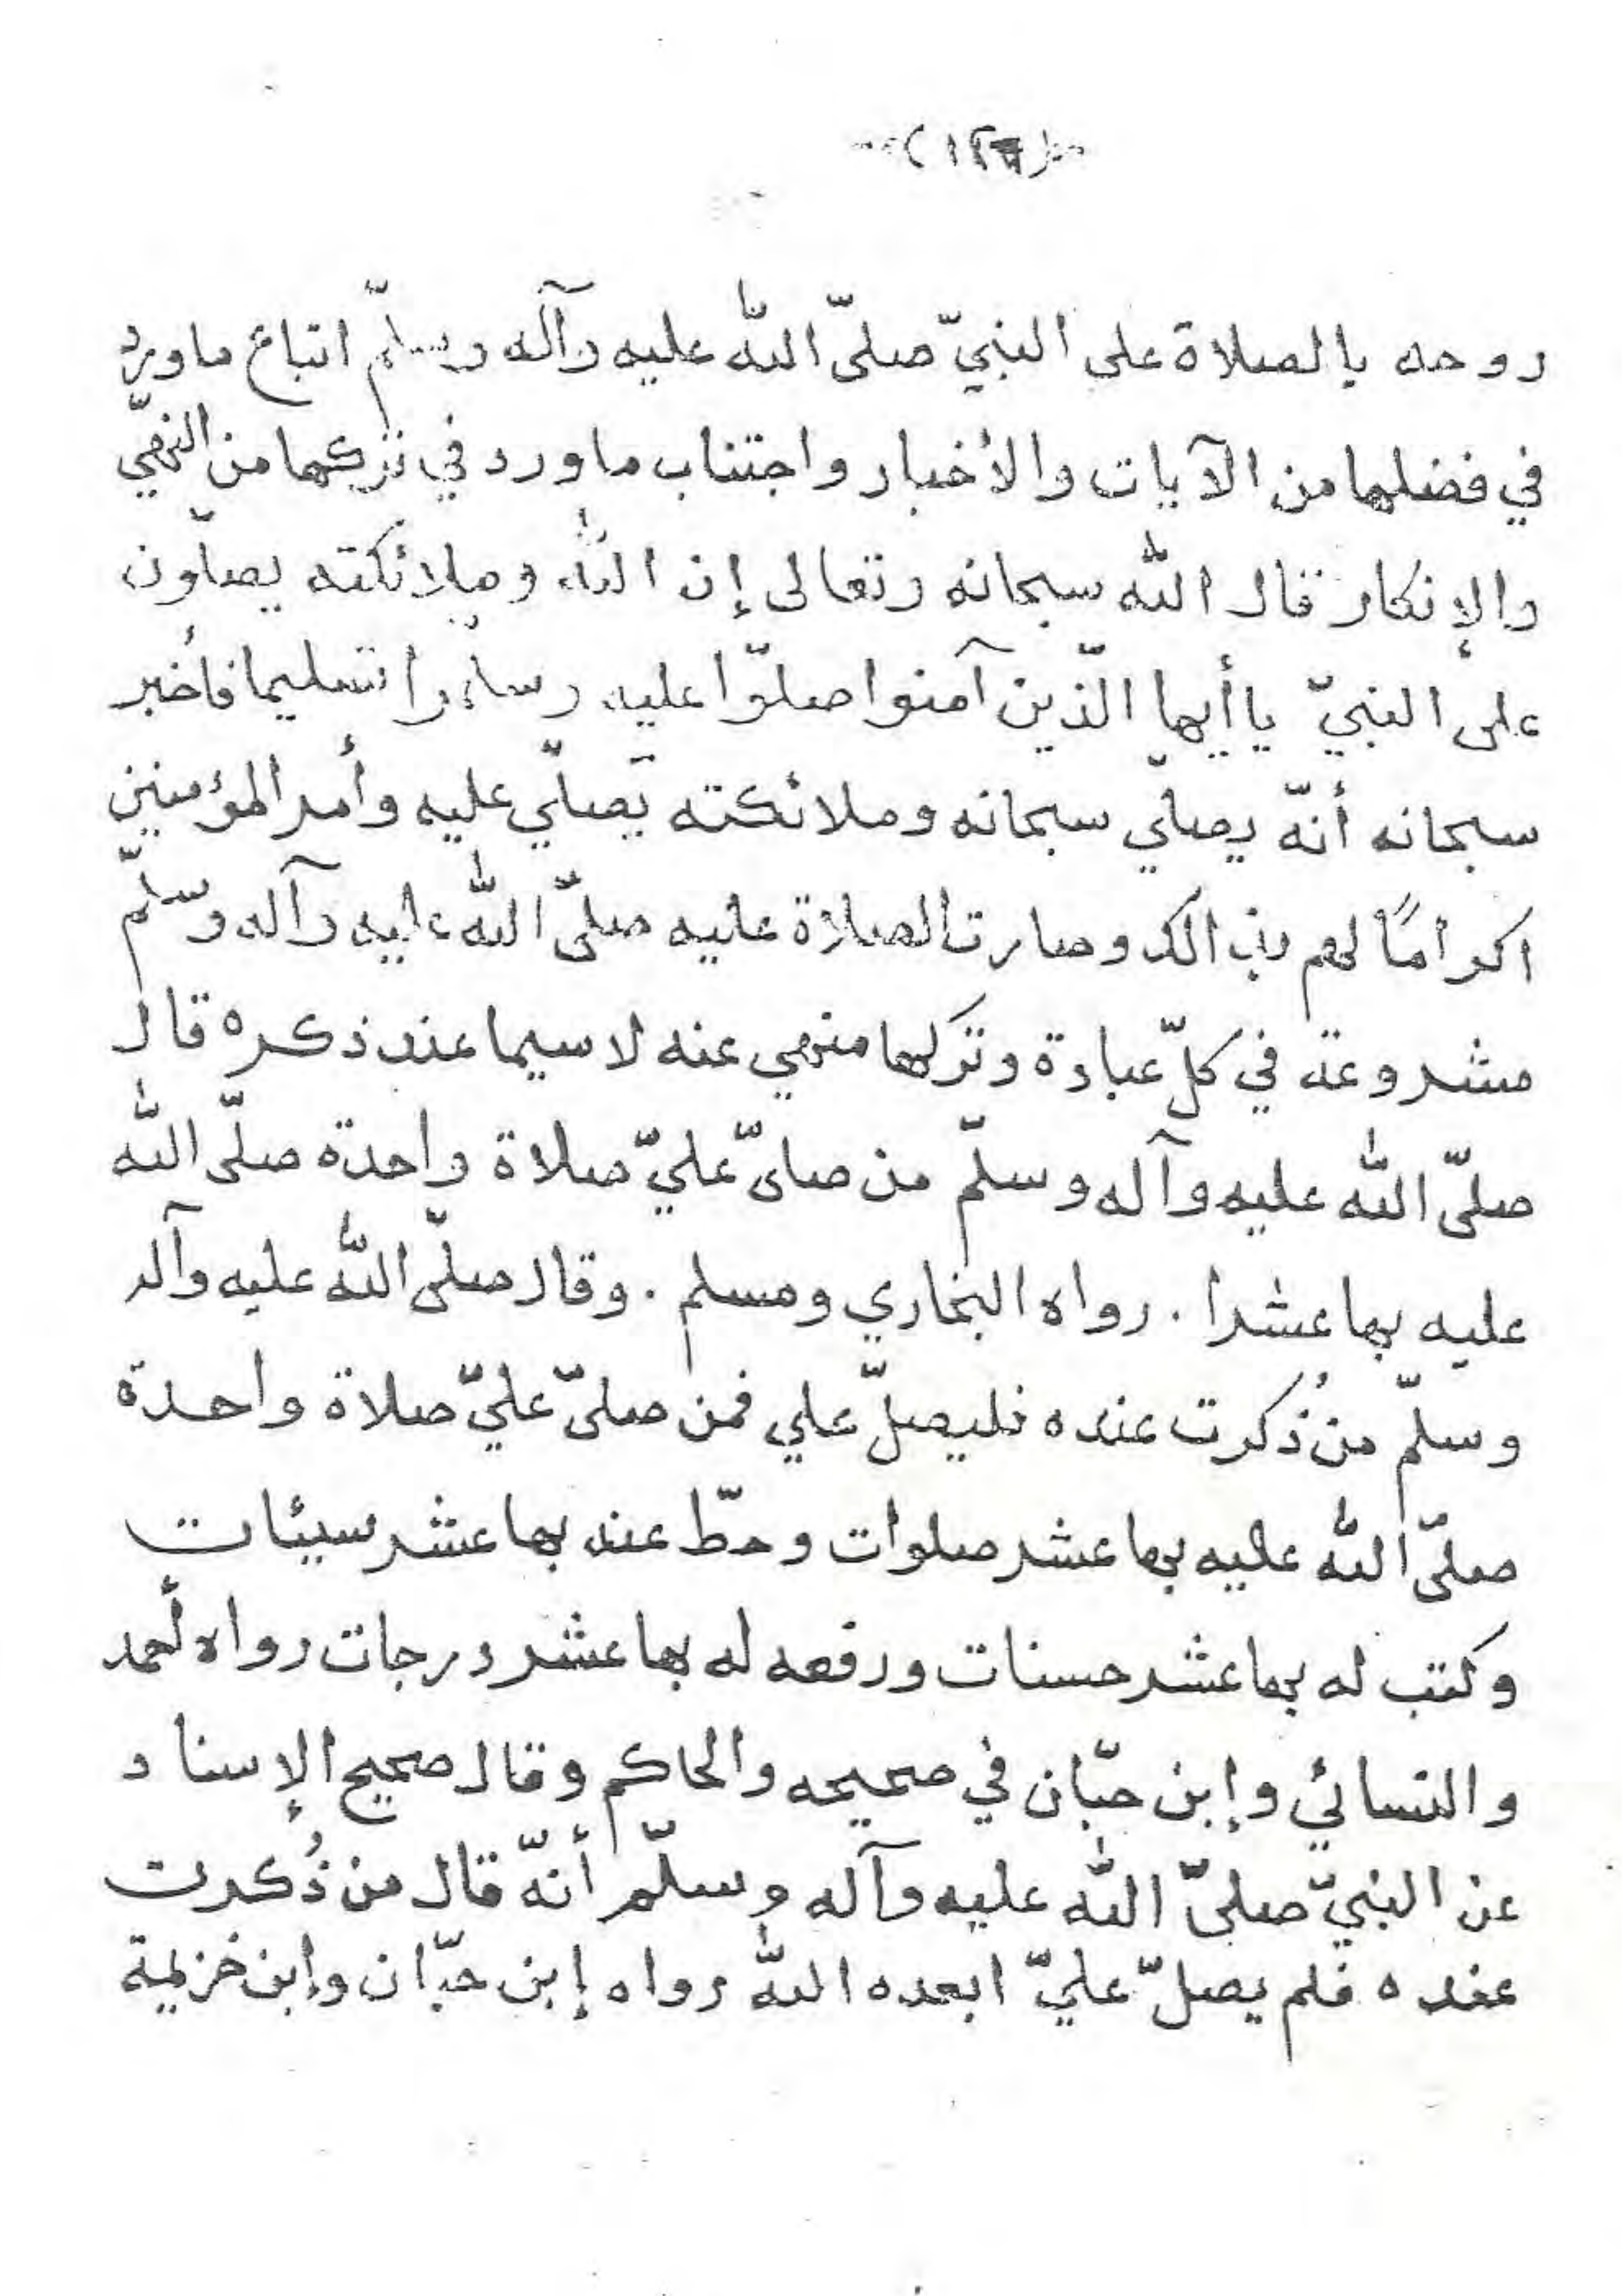 روحه بالصلاة على النبيّ صلّى اللّه عليه وآله وسلّم اتباع ما ورد
في فضلها من الآيات والأخبار واجتناب ما ورد في تركها من النهيّ
والإنكار قال اللّه سبحانه وتعالى إن اللّه وملائكته يصلّون
على النبيّ يا أيها الّذين آمنوا صلّوا عليه وسلّموا تسليما فأخبر
سبحانه أنّه يصلّي سبحانه وملائكته يصلّي عليه وأمر المؤمنين
اكرامًا لهم بذالك وصارت الصلاة عليه صلّى اللّه عليه وآله وسلّم
مشروعة في كلّ عبادة وتركها منهي عنه لا سيما عند ذكره قال
صلّى اللّه عليه وآله وسلّم من صلىّ عليّ صلاة واحدة صلّى اللّه
عليه بها عشرا . رواه البخاري ومسلم . وقال صلّى اللّه عليه وآله
وسلّم من ذُكرت عنده فليصلّ علي فمن صلىّ عليّ صلاة واحدة
صلّى اللّه عليه بها عشر صلوات وحطّ عنه بها عشر سيئات
وكتب له بها عشر حسنات ورفعه له بها عشر درجات رواه أحمد
والنسائي وإبن حبّان في صحيحه والحاكم وقال صحيح الإسناد
عن النبيّ صلىّ اللّه عليه وآله وسلّم أنّه قال من ذُكرت
عنده فلم يصلّ عليّ ابعده اللّه رواه إبن حبّان وإبن خزيمة